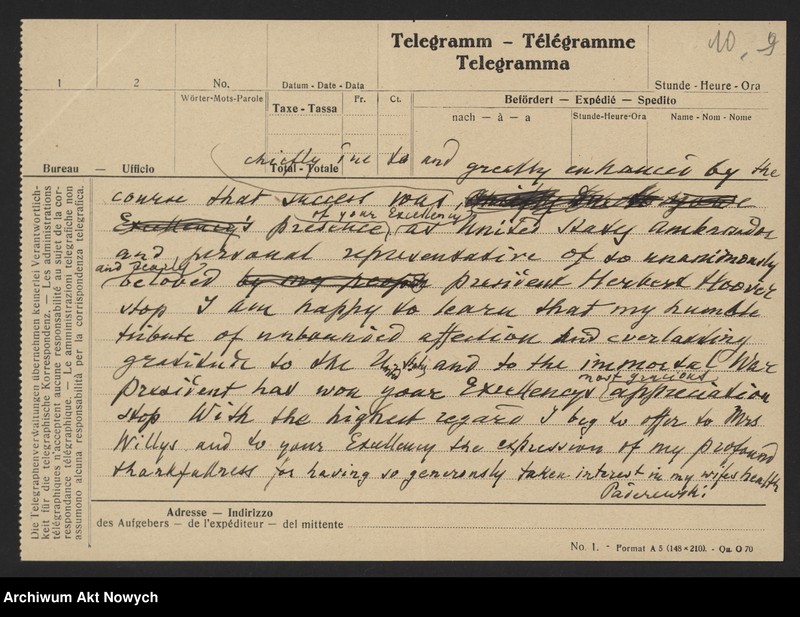 Telegramm – Télégramme
Telegramma
10. 9
1
2
No.
Datum - Date - Data
Stunde - Heure - Ora
Wörter-Mots-Parole
Taxe - Tassa
Fr.
Ct.
Befördert — Expédié — Spedito
nach — à — a
Stunde-Heure-Ora
Name - Nom - Nome
Bureau — Ufficio
Total - Totale
chiefly due to and greatly enhanced by the
course that success was
Excellency's presence of your Excellency as United States Ambassador
and personal representative of so unanimously
and dearly
beloved by my people President Herbert Hoover
stop I am happy to learn that my humble
tribute of unbounded affection and everlasting
gratitude to the United States and to the immortal War
most gracious
President has won your Excellency's appreciation
stop With the highest regard I beg to offer to Mrs
Willys and to your Excellency the expression of my profound
thankfulness for having so generously taken interest in my wife's health
Paderewski
Adresse — Indirizzo
des Aufgebers — de l'expéditeur — del mittente
No. 1. - Format A 5 (148×210). - Qu. O 70
Die Telegraphenverwaltungen übernehmen keinerlei Verantwortlich-
keit für die telegraphische Korrespondenz. — Les administrations
télégraphiques n'acceptent aucune responsabilité au sujet de la cor-
respondance télégraphique. — Le amministrazioni telegrafiche non
assumono alcuna responsabilità per la corrispondenza telegrafica.
Archiwum Akt Nowych